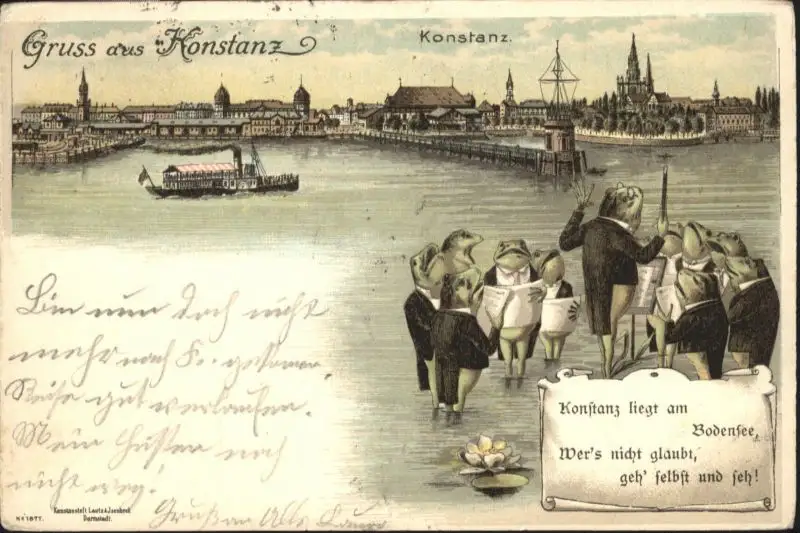 Gruss aus Konstanz
Konstanz.
Bin nun doch nicht
mehr nach
Reise gut verlaufen.
Mein Husten noch
nicht weg!
Gruß an Alle
Konstanz liegt am
Bodensee,
Wer's nicht glaubt,
geh' selbst und seh!
Kunstanstalt Lautz & Isenbeck
Darmstadt.